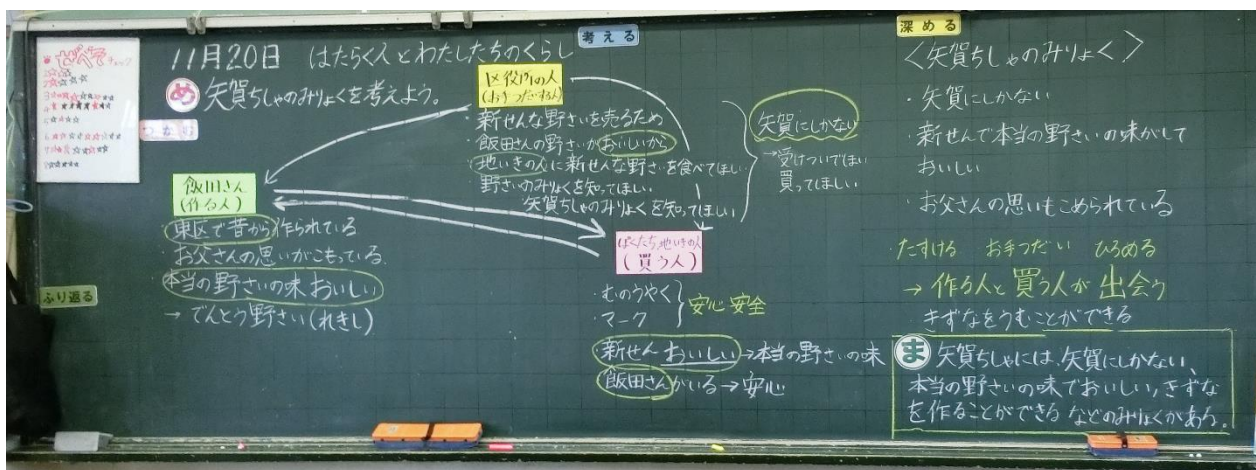 ぜべそチェック
11月20日 はたらく人とわたしたちのくらし
め 矢賀ちしゃのみりょくを考えよう。
つかむ
飯田さん
(作る人)
東区で昔から作られている
お父さんの思いがこもっている
本当の野さいの味 おいしい
→ でんとう野さい(れきし)
ふり返る
考える
区役所の人
(おてつだいする人)
・新せんな野さいを売るため
・飯田さんの野さいがおいしいから
・地いきの人に新せんな野さいを食べてほしい
・野さいのみりょくを知ってほしい
矢賀ちしゃのみりょくを知ってほしい
矢賀にしかない
→受けついでほしい
買ってほしい
ぼくたち地いきの人
(買う人)
・むのうやく
・マーク
安心 安全
・新せん おいしい→本当の野さいの味
飯田さんがいる→安心
深める
〈矢賀ちしゃのみりょく〉
・矢賀にしかない
・新せんで本当の野さいの味がして
おいしい
・お父さんの思いもこめられている
・たすける お手つだい ひろめる
→ 作る人と買う人が出会う
きずなをうむことができる
ま 矢賀ちしゃには、矢賀にしかない、
本当の野さいの味でおいしい、きずな
を作ることができる などのみりょくがある。